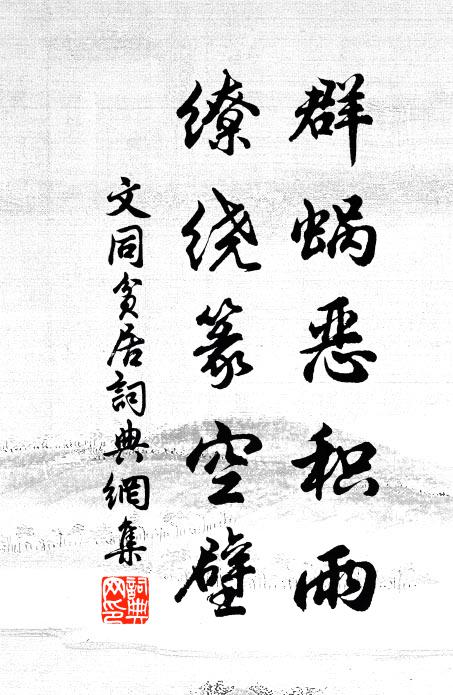 群蜗恶积雨
缭绕篆空壁
文同贫居詞典網集
詞典網印